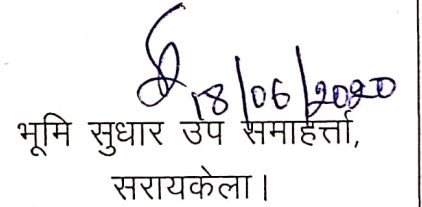 18/06/2020
भूमि सुधार उप समाहर्त्ता,
सरायकेला।